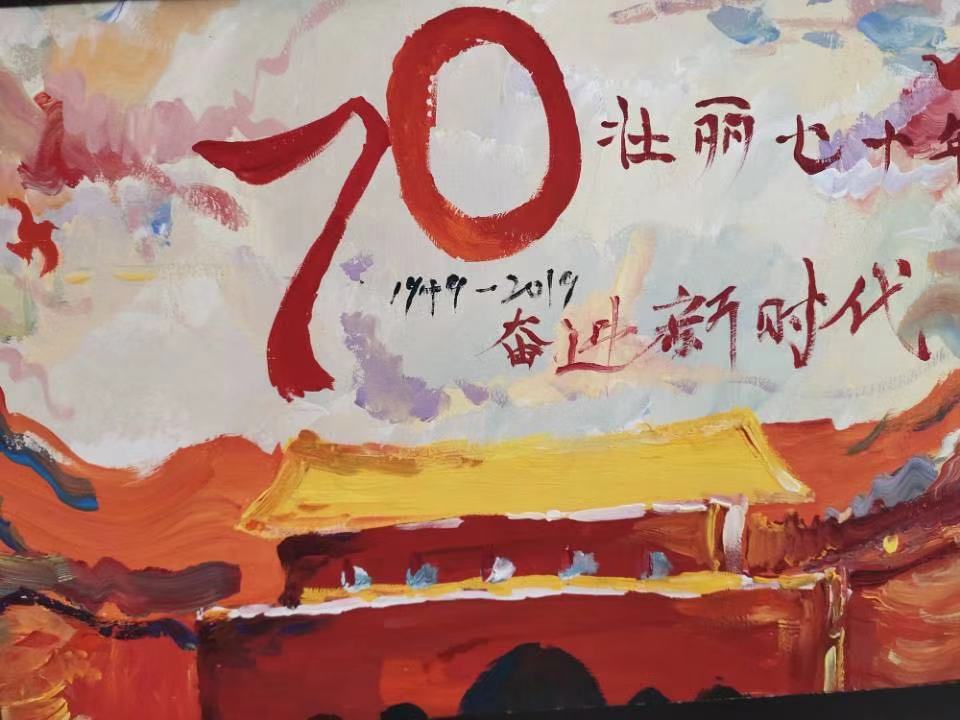 70
壮丽七十年
1949-2019
奋进新时代